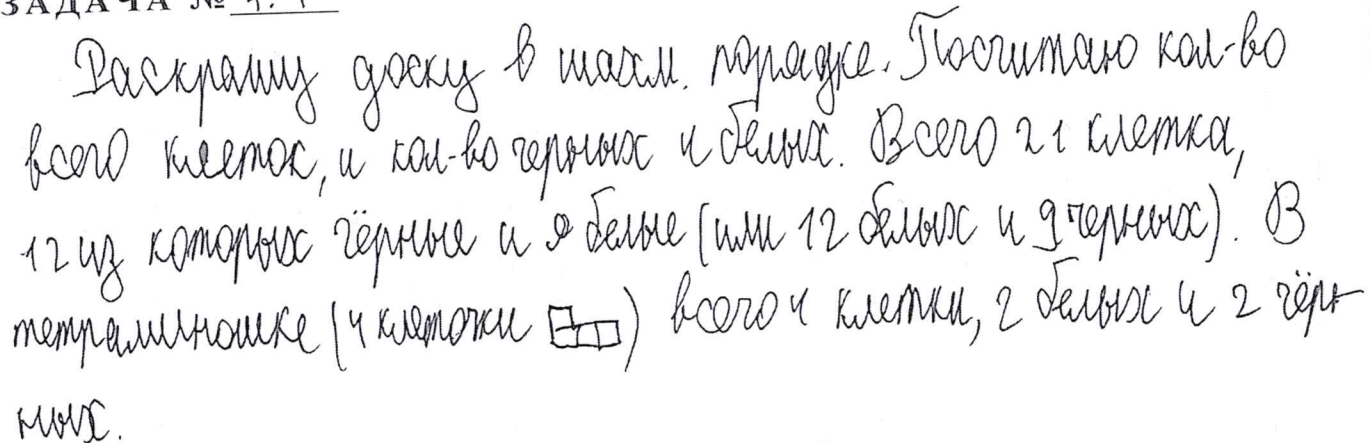 ЗАДАЧА №
Раскрашу доску в шахм. порядке. Посчитаю кол-во
всего клеток, и кол-во черных и белых. Всего 21 клетка,
12 из которых чёрные и 9 белые (или 12 белых и 9 черных). В
тетраминошке (4 клеточки ) всего 4 клетки, 2 белых и 2 чёр-
ных.